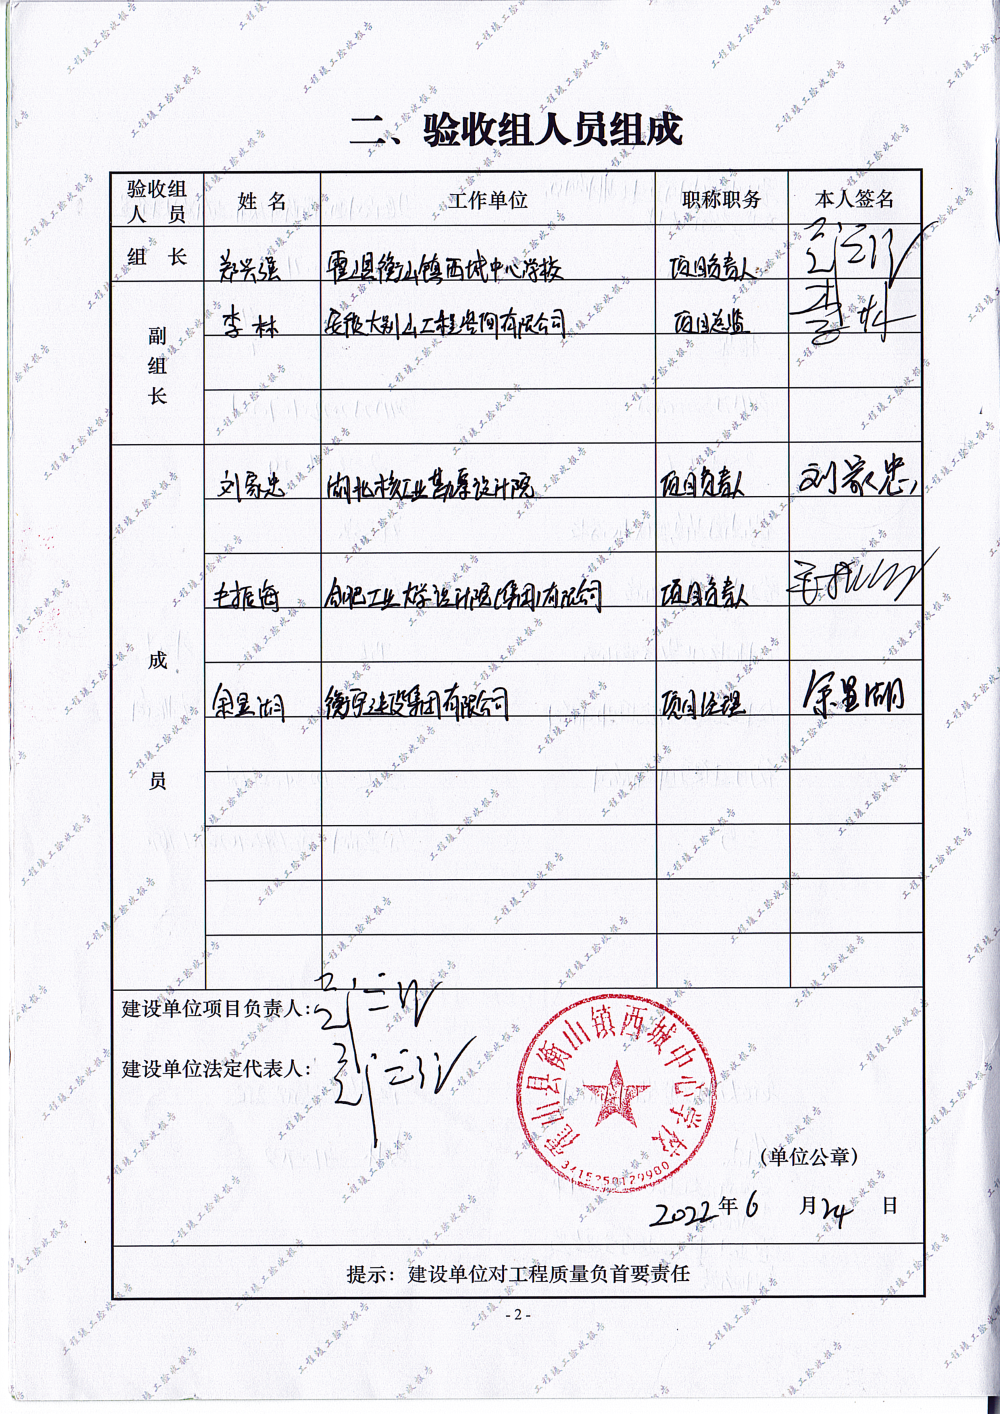 二、验收组人员组成
验收组人员 姓名 工作单位 职称职务 本人签名
组长 郑兴强 霍山县衡山镇西城中心学校 项目负责人
副组长 李林 安徽大别山工程咨询有限公司 项目总监 李林
成员 刘家忠 湖北核工业勘察设计院 项目负责人 刘家忠
毛振海 合肥工业大学设计院(集团)有限公司 项目负责人
余显湖 衡宇建设集团有限公司 项目经理 余显湖
建设单位项目负责人:
建设单位法定代表人:
霍山县衡山镇西城中心学校
(单位公章)
2022年6月24日
提示：建设单位对工程质量负首要责任
- 2 -
工程竣工验收报告